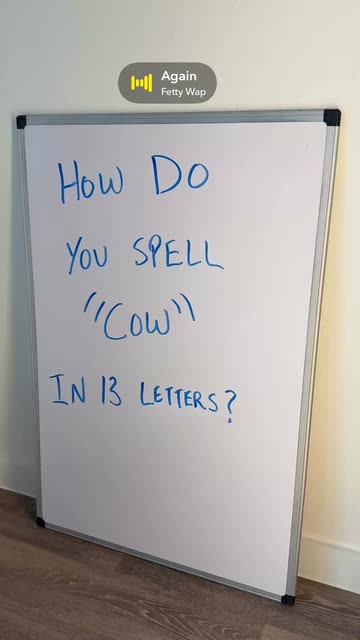 Again
Fetty Wap
HOW DO
YOU SPELL
"COW"
IN 13 LETTERS?